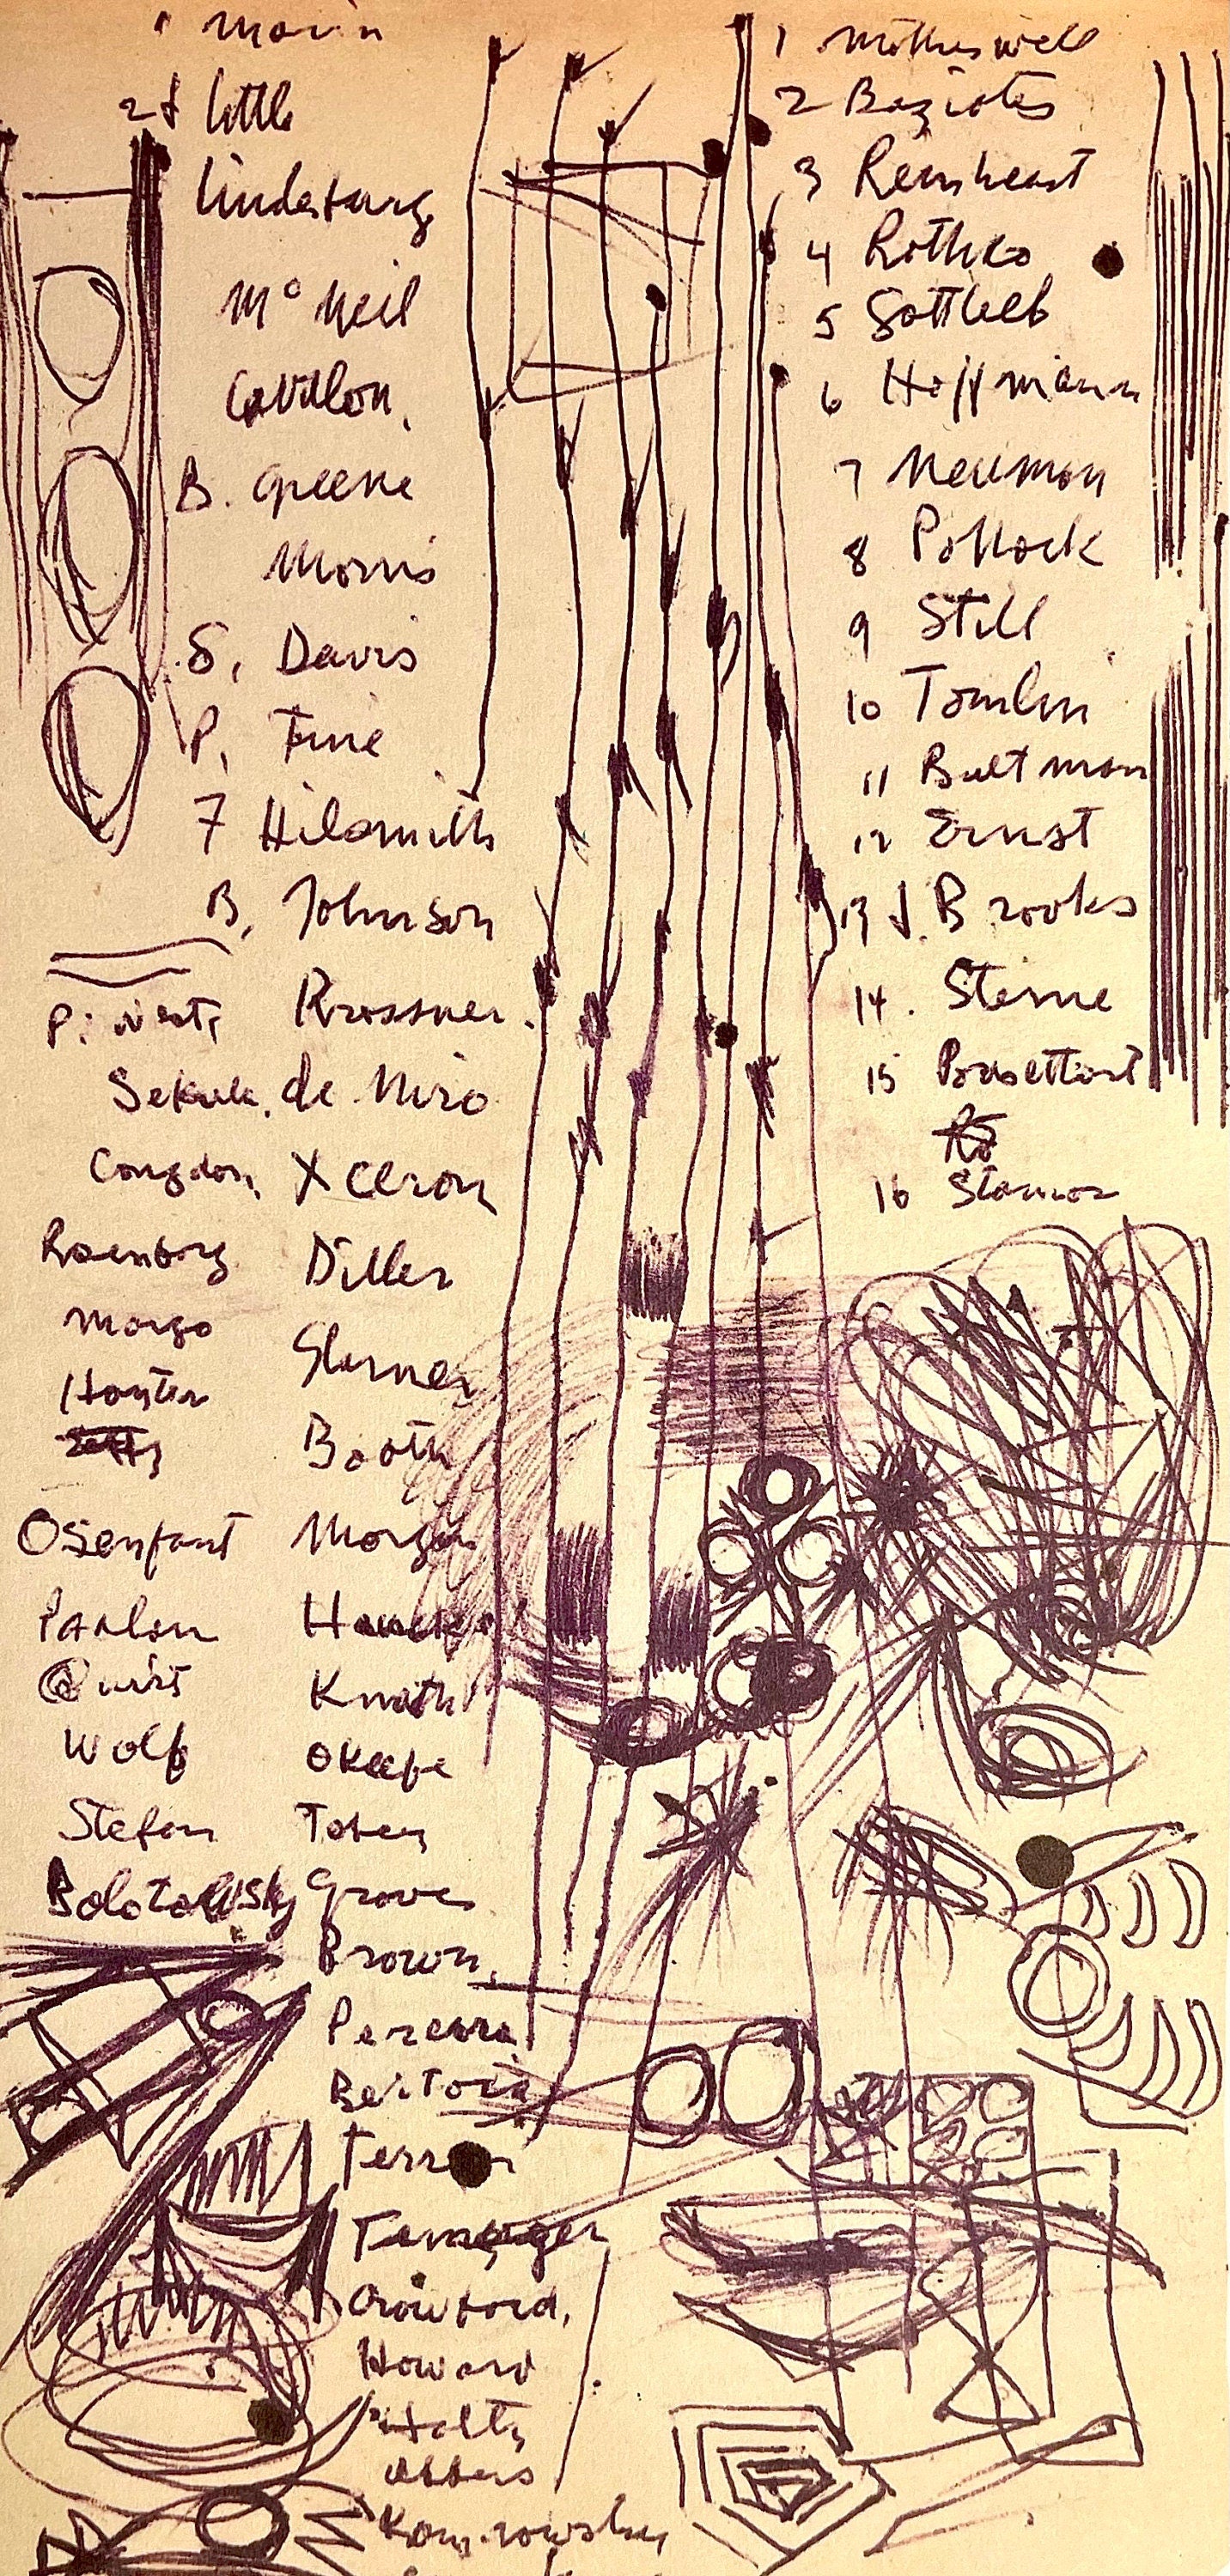 1 Marin
2 J little
Lindeburg
Mc Neil
Cavallon,
B. Greene
Morris
S. Davis
P. Fine
7 Hilsmith
B. Johnson
P.
Krassner.
Sekula. de Niro
Congdon, X Ceron
Rosenborg Diller
Margo
Slerner
Booth
Osenfant Morgan
Knath
Wolff Okeefe
Stefan Tobey
Bolotowsky Graves
Brown,
Pereira
Bertoia
Crawford,
Howard
Holty
Albers
1 Motherwell
2 Baziotes
3 Reinheart
4 Rothko
5 Gottlieb
6 Hoffmann
7 Newman
8 Pollock
9 Still
10 Tomlin
11 Bultman
12 Ernst
13 J. Brooks
14. Sterne
15 Pousettdart
16 Stamos